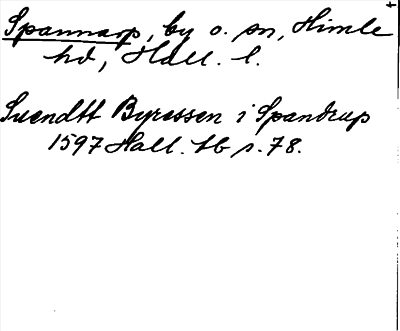 Spannarp, by o. sn, Himle
hd, Hall. l.
Suendtt Byressen i Spandrup
1597 Hall. tb s. 78.